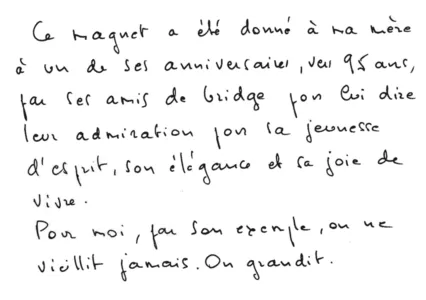 Ce magnet a été donné à ma mère
à un de ses anniversaires, vers 95 ans,
par ses amis de bridge pour lui dire
leur admiration pour sa jeunesse
d'esprit, son élégance et sa joie de
vivre.
Pour moi, par son exemple, on ne
vieillit jamais. On grandit.